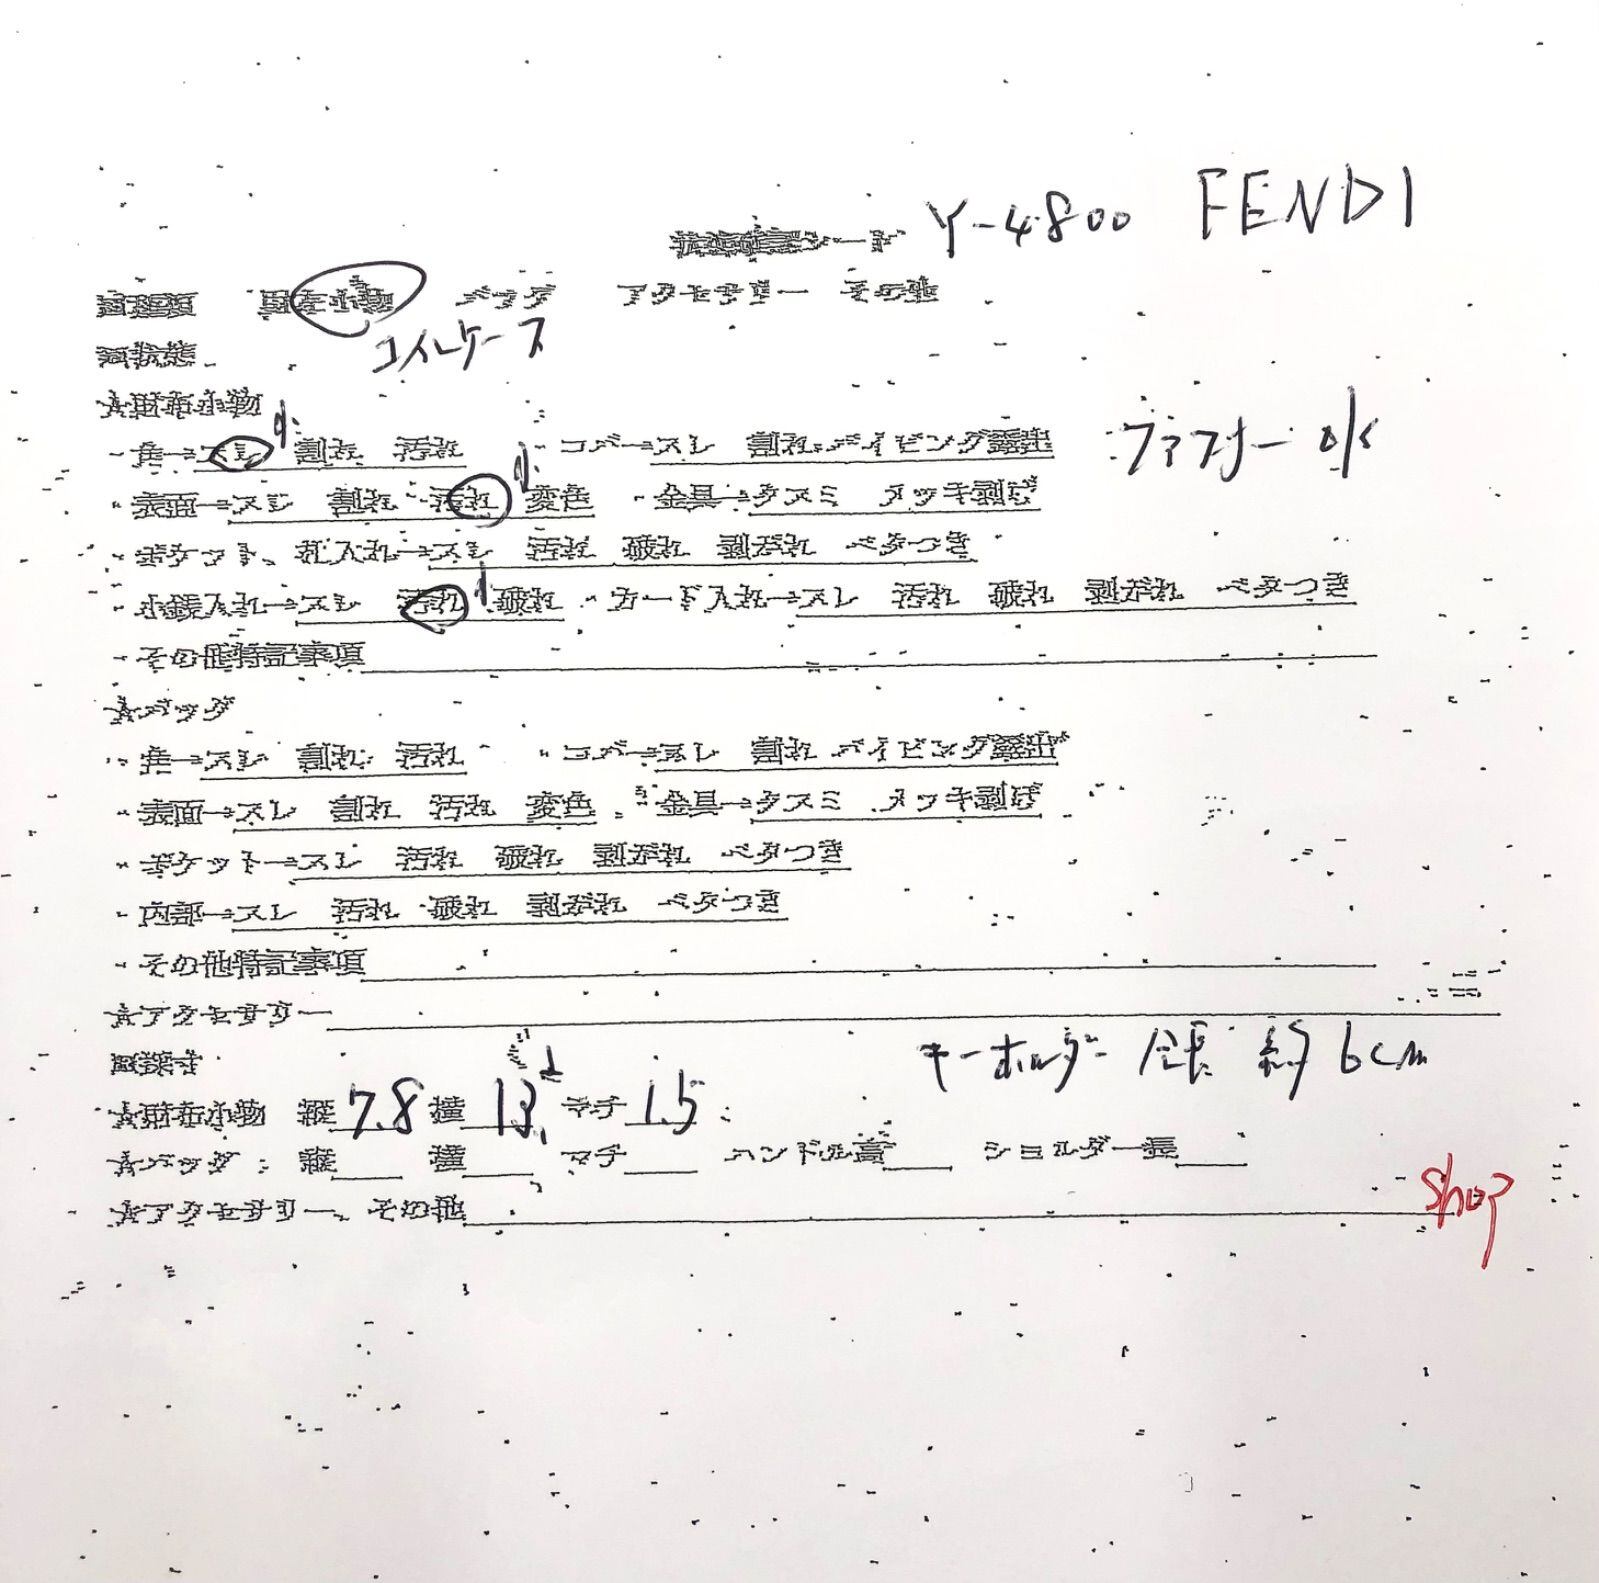 シート Y-4800 FENDI
財布小物 バッグ アクセサリー その他
コインケース
状態
★財布小物
・角→スレ 割れ 汚れ ・コバ→スレ 割れ パイピング露出 ファスナー ok
・表面→スレ 割れ 汚れ 変色 ・金具→クスミ メッキ剥げ
・ポケット、札入れ→スレ 汚れ 破れ 剥がれ ベタつき
・小銭入れ→スレ 汚れ 破れ ・カード入れ→スレ 汚れ 破れ 剥がれ ベタつき
・その他特記事項
★バッグ
・角→スレ 割れ 汚れ ・コバ→スレ 割れ パイピング露出
・表面→スレ 割れ 汚れ 変色 ・金具→クスミ メッキ剥げ
・ポケット→スレ 汚れ 破れ 剥がれ ベタつき
・内部→スレ 汚れ 破れ 剥がれ ベタつき
・その他特記事項
★アクセサリー
採寸 キーホルダー 全長 約6cm
★財布小物 縦 7.8 横 13 マチ 1.5
★バッグ 縦 横 マチ ハンドル高 ショルダー長
★アクセサリー、その他
shop